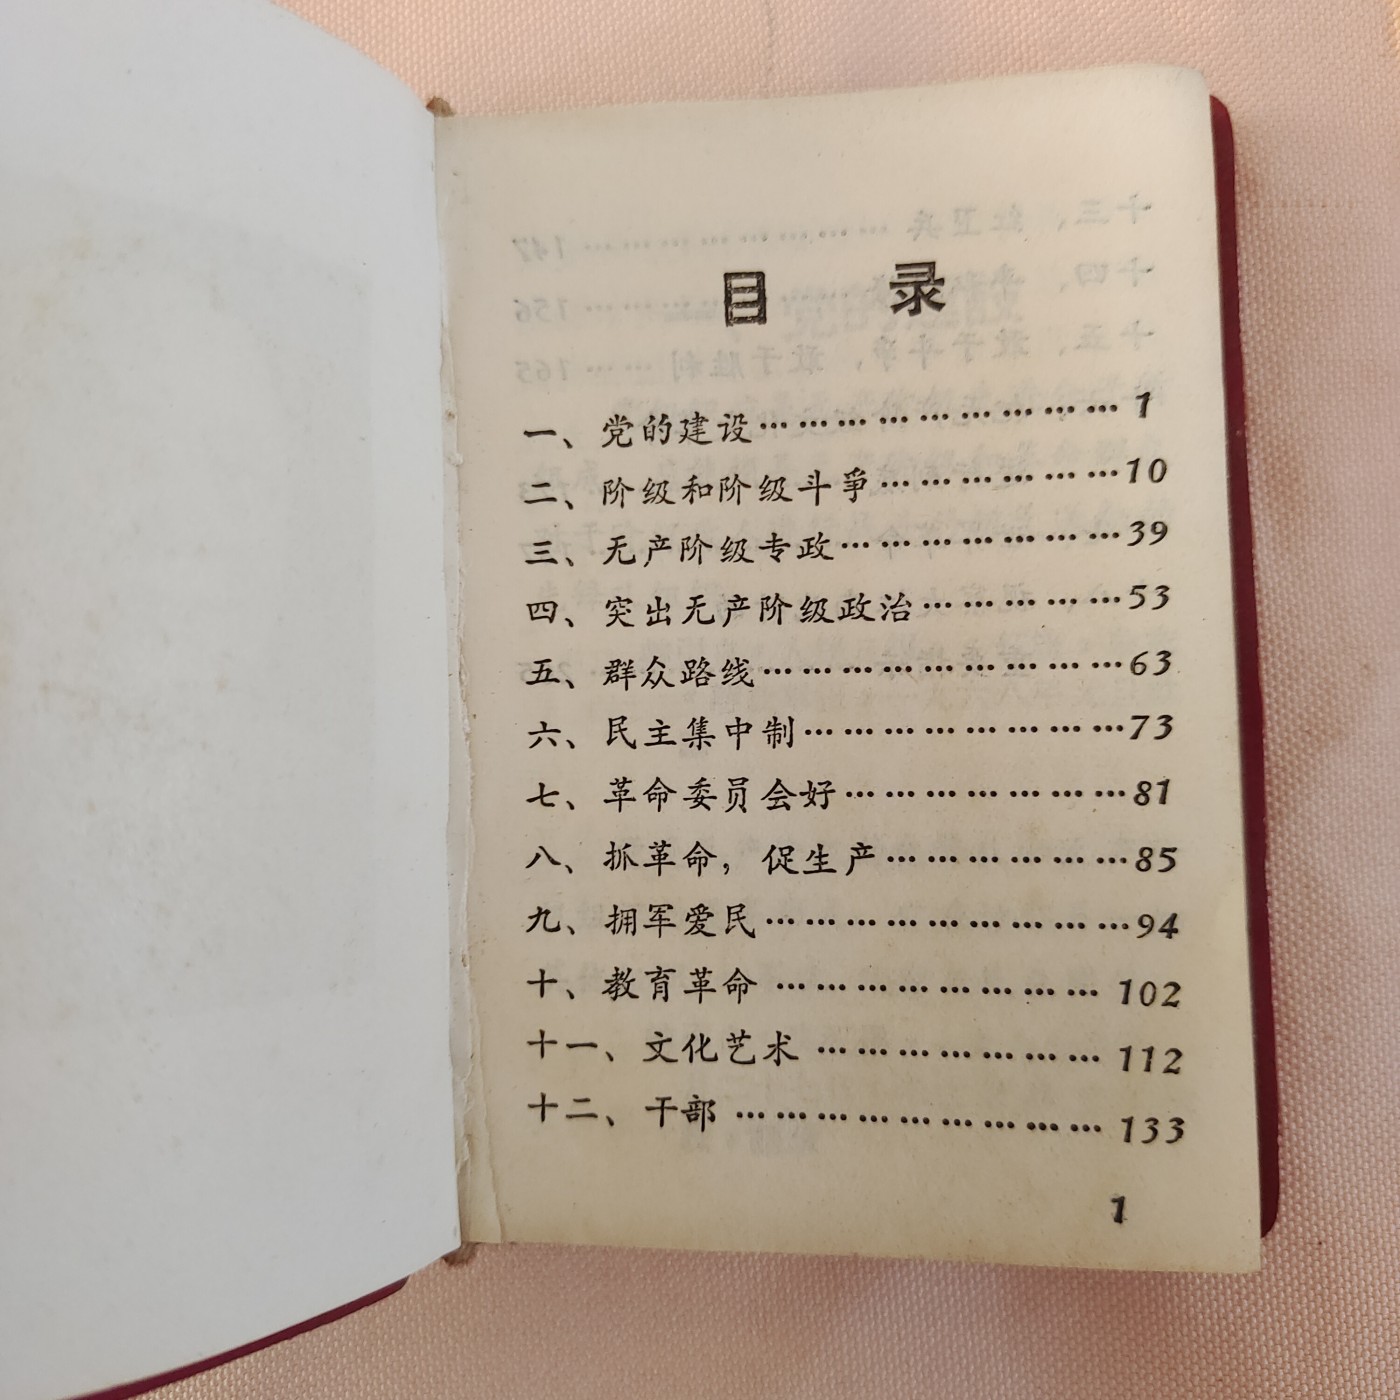 目 录
一、党的建设………………………… 1
二、阶级和阶级斗争…………………10
三、无产阶级专政……………………39
四、突出无产阶级政治………………53
五、群众路线…………………………63
六、民主集中制………………………73
七、革命委员会好……………………81
八、抓革命，促生产…………………85
九、拥军爱民…………………………94
十、教育革命 ……………………… 102
十一、文化艺术 …………………… 112
十二、干部 ………………………… 133
1